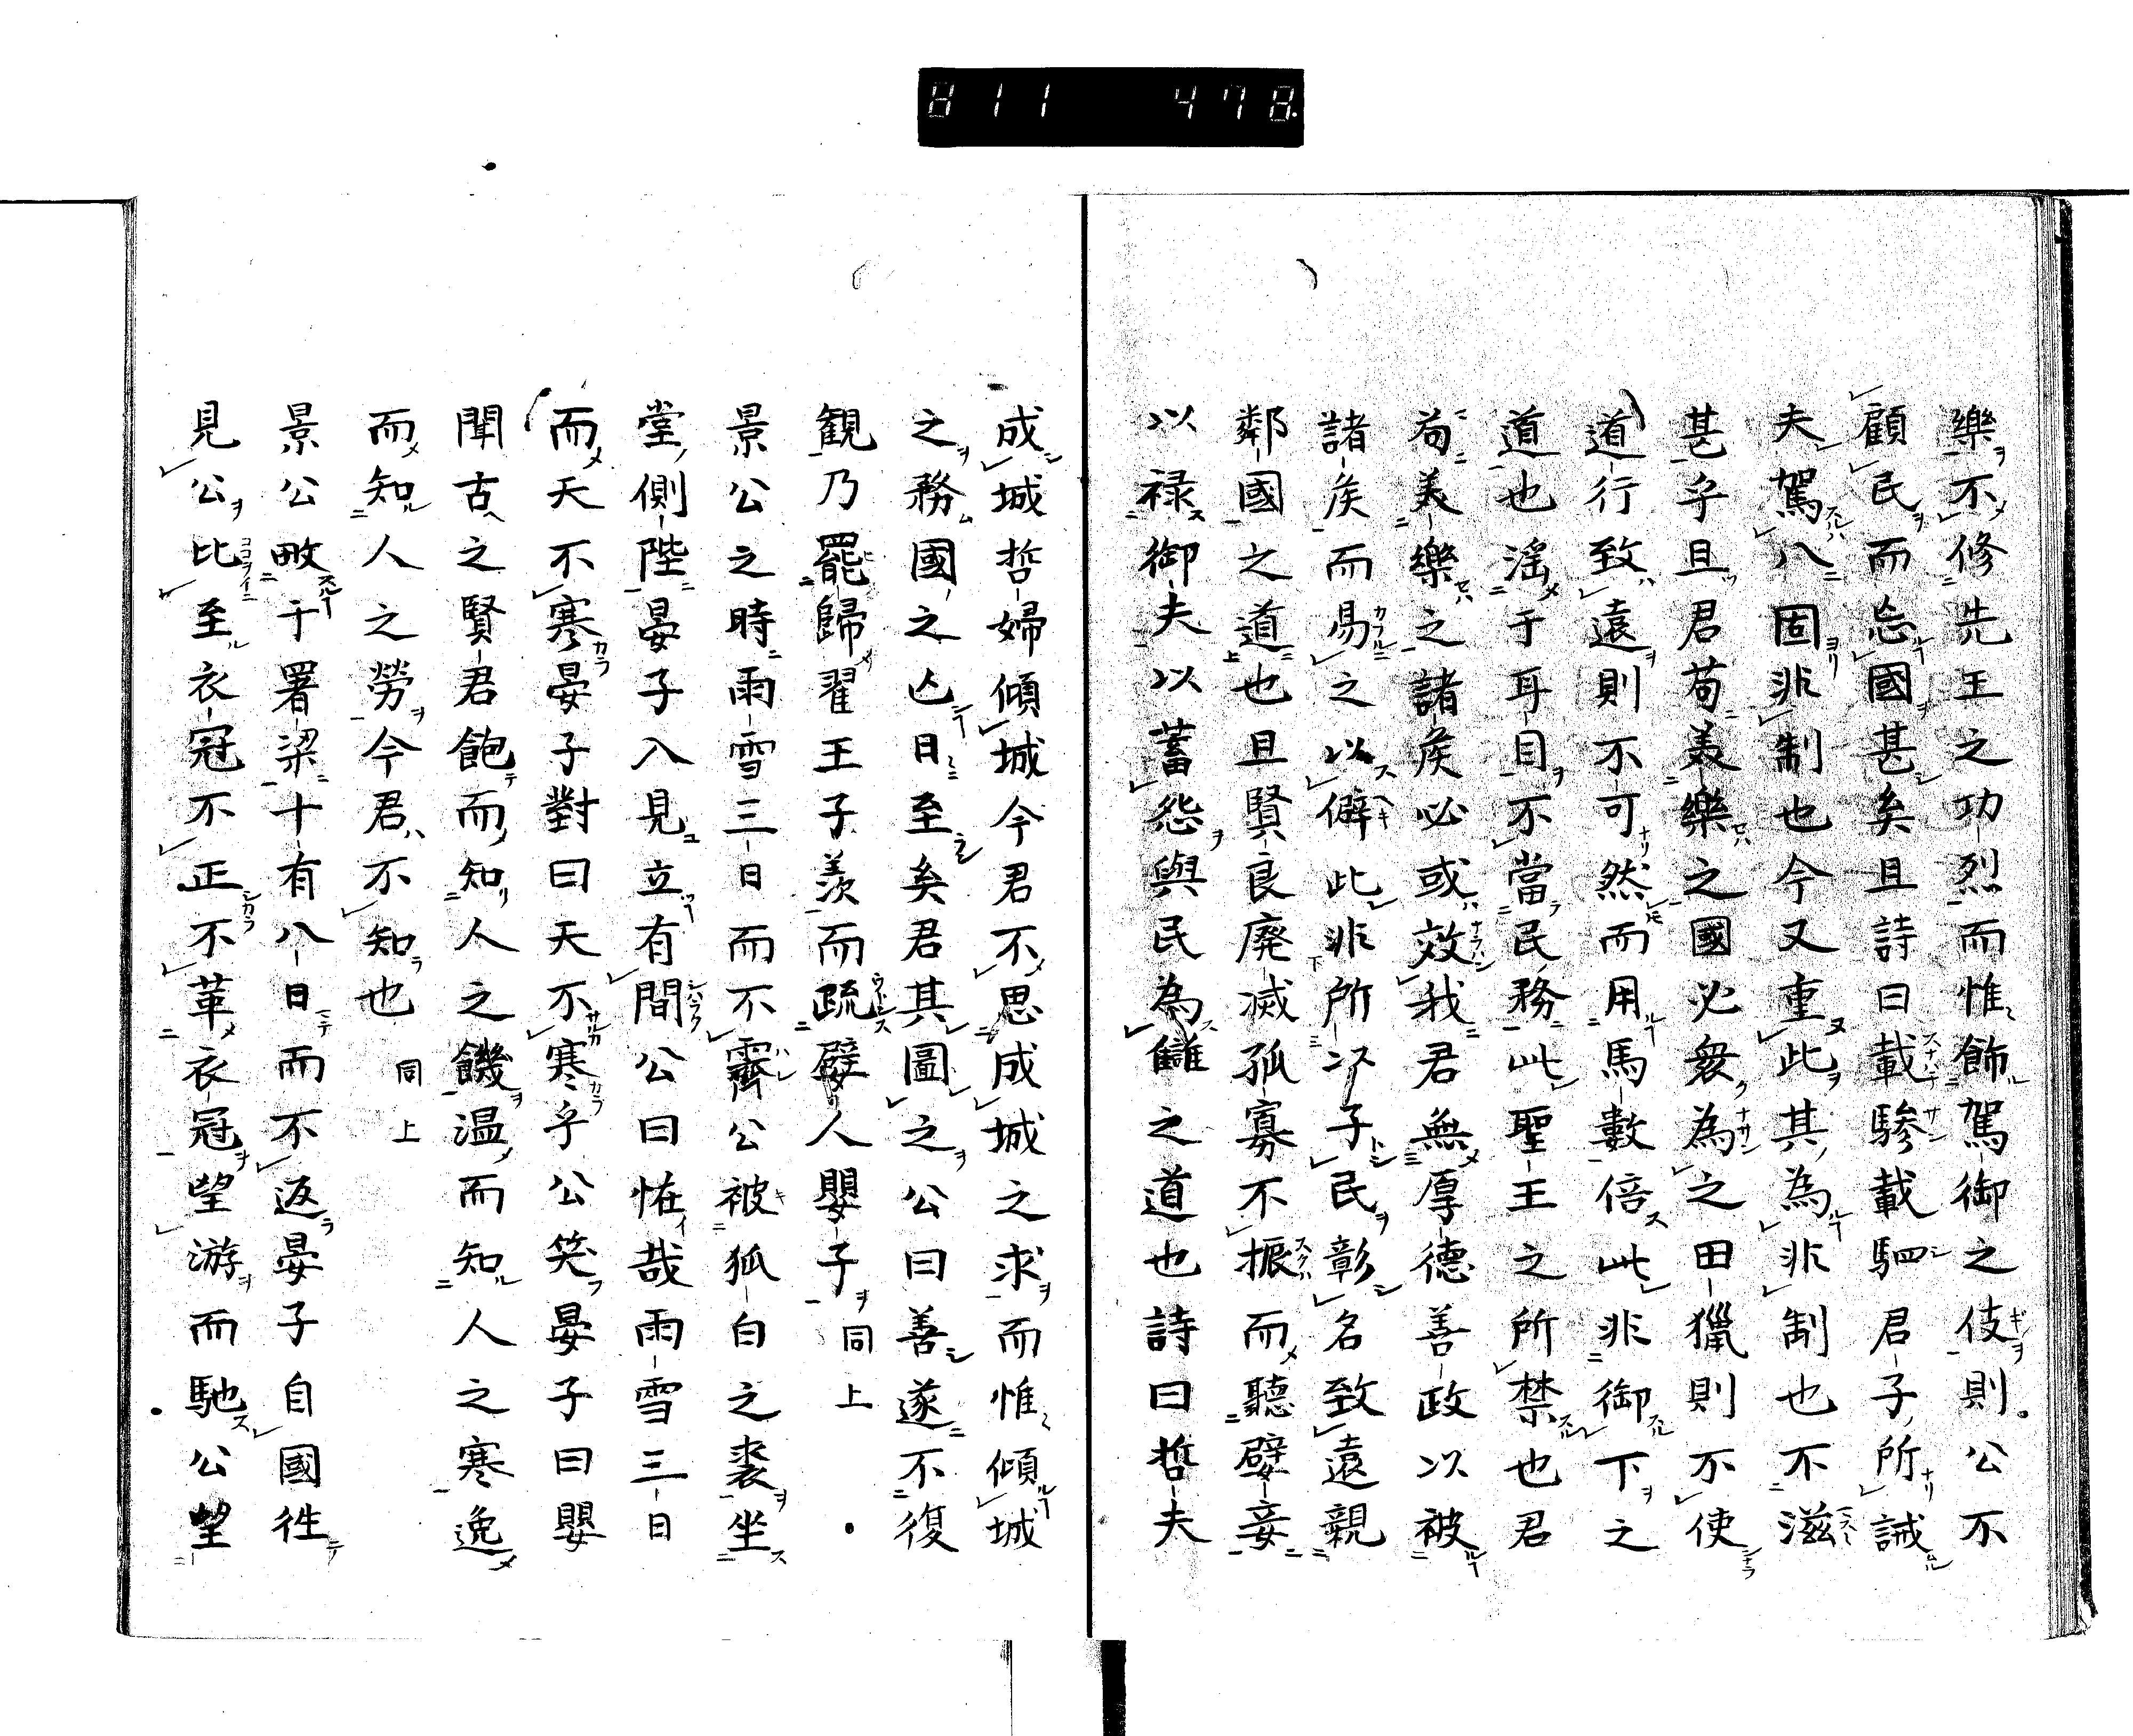 811 478
樂不修先王之功烈而惟飾駕御之伎則公不
顧民而忘國甚矣且詩曰載驂載駟君子所誡
夫駕八固非制也今又重此其為非制也不滋
甚乎且君苟美樂之國必衆為之田獵則不使
道行致遠則不可然而用馬數倍此非御下之
道也淫于耳目不當民務此聖王之所禁也君
苟美樂之諸侯必或效我君無厚德善政以被
諸侯而易之以僻此非所以子民彰名致遠親
鄰國之道也且賢良廃滅孤寡不振而聽嬖妾
以禄御夫以蓄怨與民為讎之道也詩曰哲夫
成城哲婦傾城今君不思成城之求而惟傾城
之務國之亡日至矣君其圖之公曰善遂不復
観乃罷歸翟王子羨而疏嬖人嬰子同上
景公之時雨雪三日而不霽公被狐白之裘坐
堂側陛晏子入見立有間公曰恠哉雨雪三日
而天不寒晏子對曰天不寒乎公笑晏子曰嬰
聞古之賢君飽而知人之饑温而知人之寒逸
而知人之勞今君不知也同上
景公畋于署梁十有八日而不返晏子自國徃
見公比至衣冠不正不革衣冠望游而馳公望